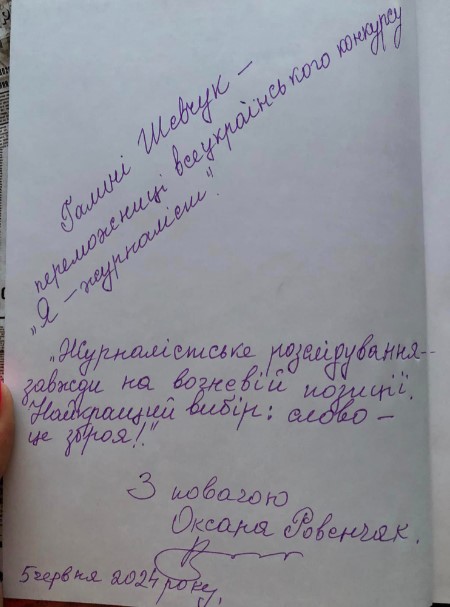 Галині Шевчук –
переможниці всеукраїнського конкурсу
"Я – журналіст".
"Журналістське розслідування –
завжди на вогневій позиції.
Найкращий вибір: слово –
це зброя!"
З повагою
Оксана Ровенчак.
5 червня 2024 року.